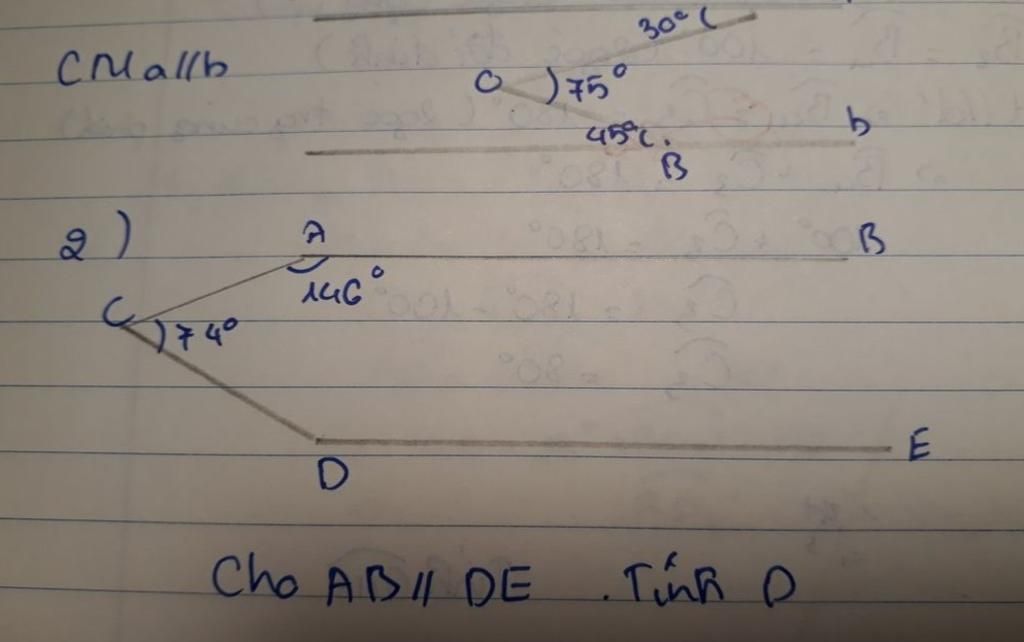 30°
CM a//b
O 75°
45° b
B
2) A B
146°
C 74°
D E
Cho AB // DE . Tính D